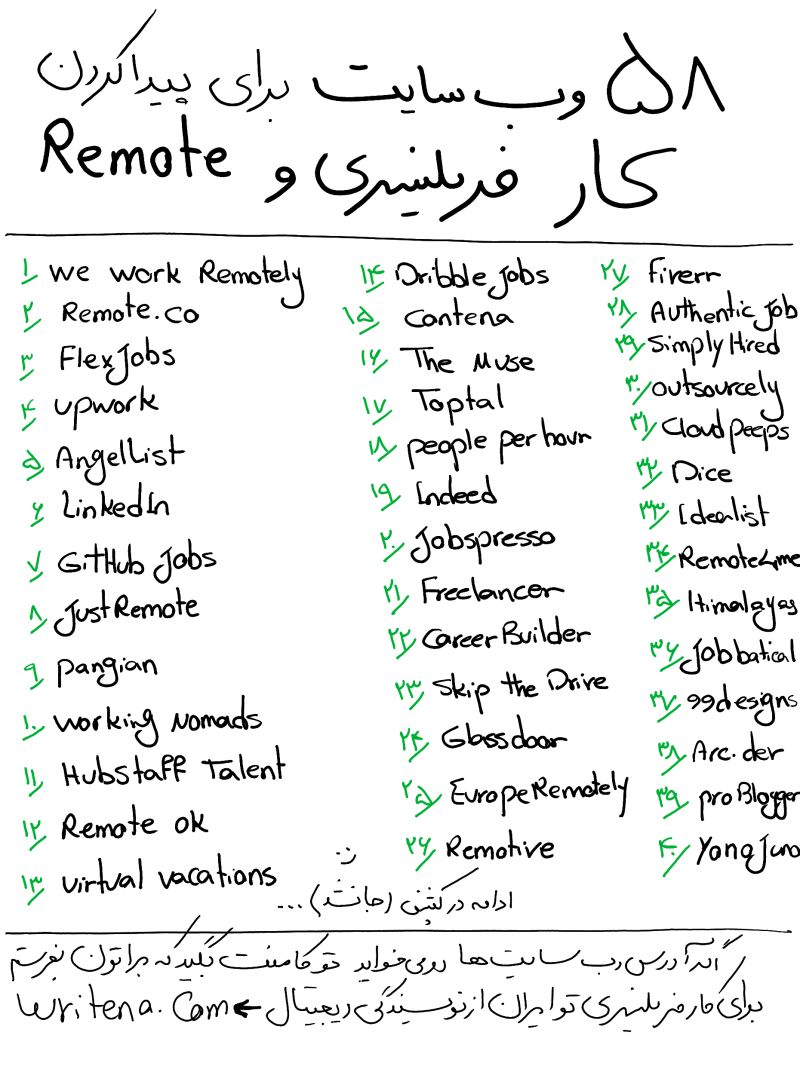 ۵۸ وب سایت برای پیدا کردن
کار فریلنسری و Remote
۱ We work Remotely
۲ Remote.co
۳ FlexJobs
۴ upwork
۵ AngelList
۶ LinkedIn
۷ GitHub Jobs
۸ JustRemote
۹ pangian
۱۰ working Nomads
۱۱ Hubstaff Talent
۱۲ Remote ok
۱۳ virtual vacations
۱۴ Dribble Jobs
۱۵ Contena
۱۶ The Muse
۱۷ Toptal
۱۸ people per hour
۱۹ Indeed
۲۰ Jobspresso
۲۱ Freelancer
۲۲ Career Builder
۲۳ Skip the Drive
۲۴ Glassdoor
۲۵ Europe Remotely
۲۶ Remotive
۲۷ fiverr
۲۸ Authentic Job
۲۹ Simply Hired
۳۰ outsourcely
۳۱ Cloud peeps
۳۲ Dice
۳۳ Idealist
۳۴ Remote4me
۳۵ Himalayas
۳۶ Jobbatical
۳۷ 99designs
۳۸ Arc.dev
۳۹ pro Blogger
۴۰ Yong Juno
ادامه در کپشن (جا نشد) ...
اگه آدرس وب سایت‌ها رو می‌خواید تو کامنت بگید که براتون بفرستم
برای کار فریلنسری تو ایران از نویسندگی دیجیتال ← writena.com